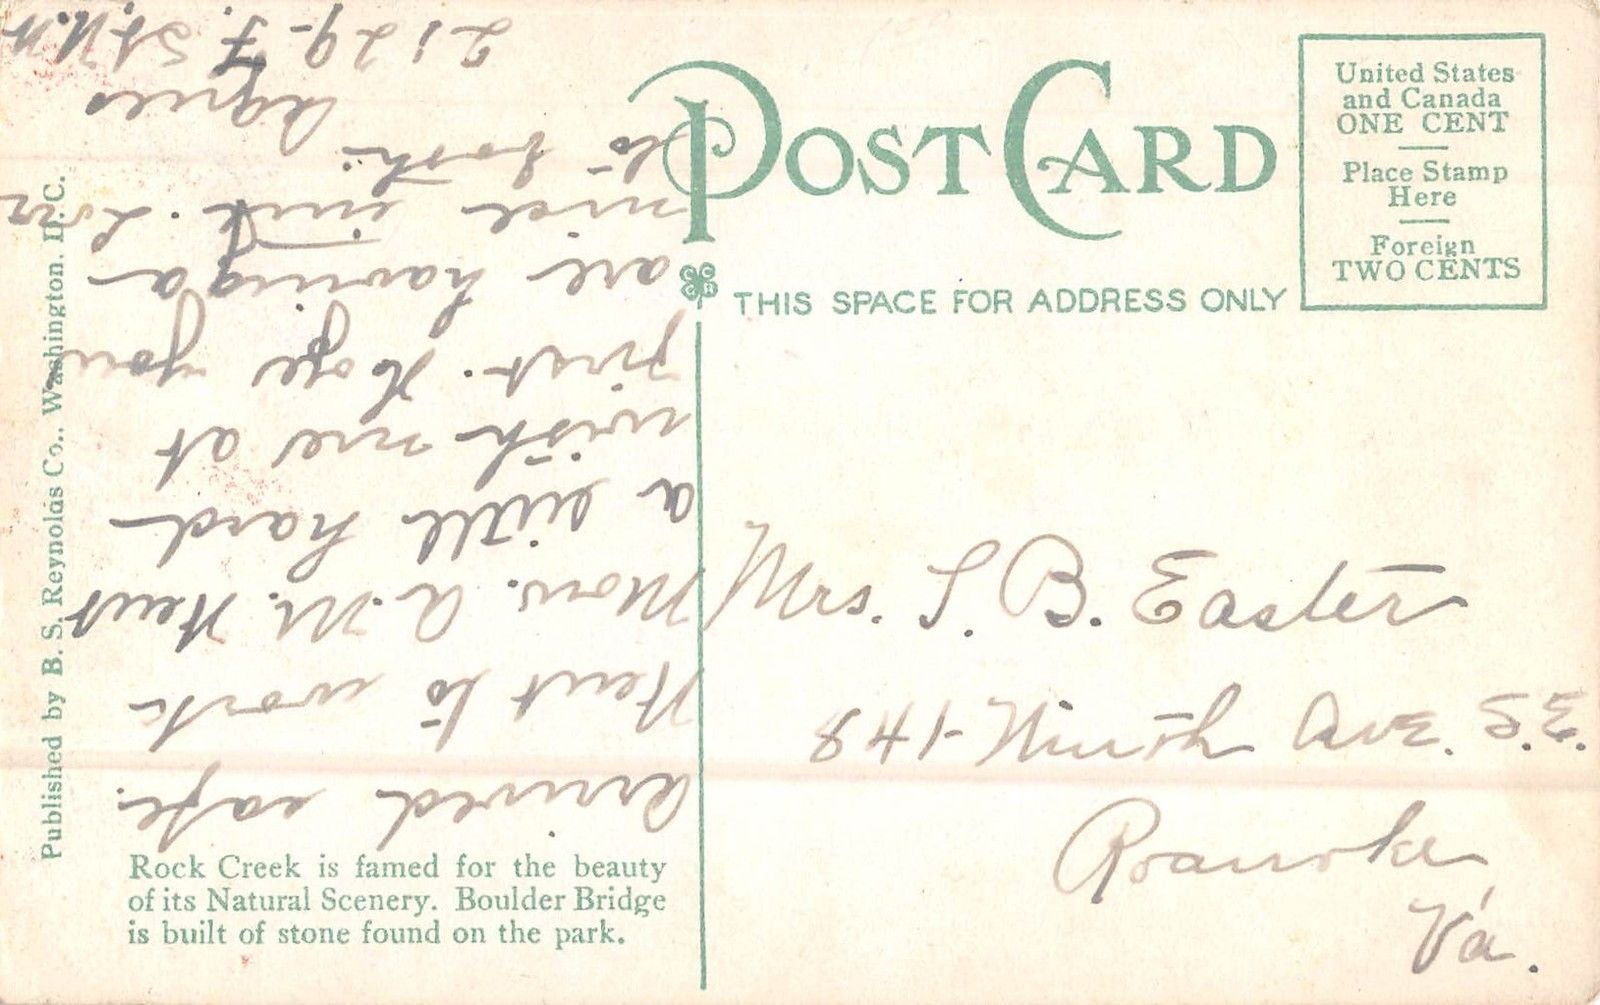 POST CARD
United States
and Canada
ONE CENT
Place Stamp
Here
Foreign
TWO CENTS
THIS SPACE FOR ADDRESS ONLY
Mrs. S. B. Easter
841- Ave. S.E.
Roanoke,
Va.
Arrived safe.
Went to work
Mon. A.M. Went
a little hard
with me at
first. Hope you
are having a
nice time. Love
to both.
Agnes
2129- F. St. N.W.
Rock Creek is famed for the beauty
of its Natural Scenery. Boulder Bridge
is built of stone found on the park.
Published by B. S. Reynolds Co., Washington, D.C.